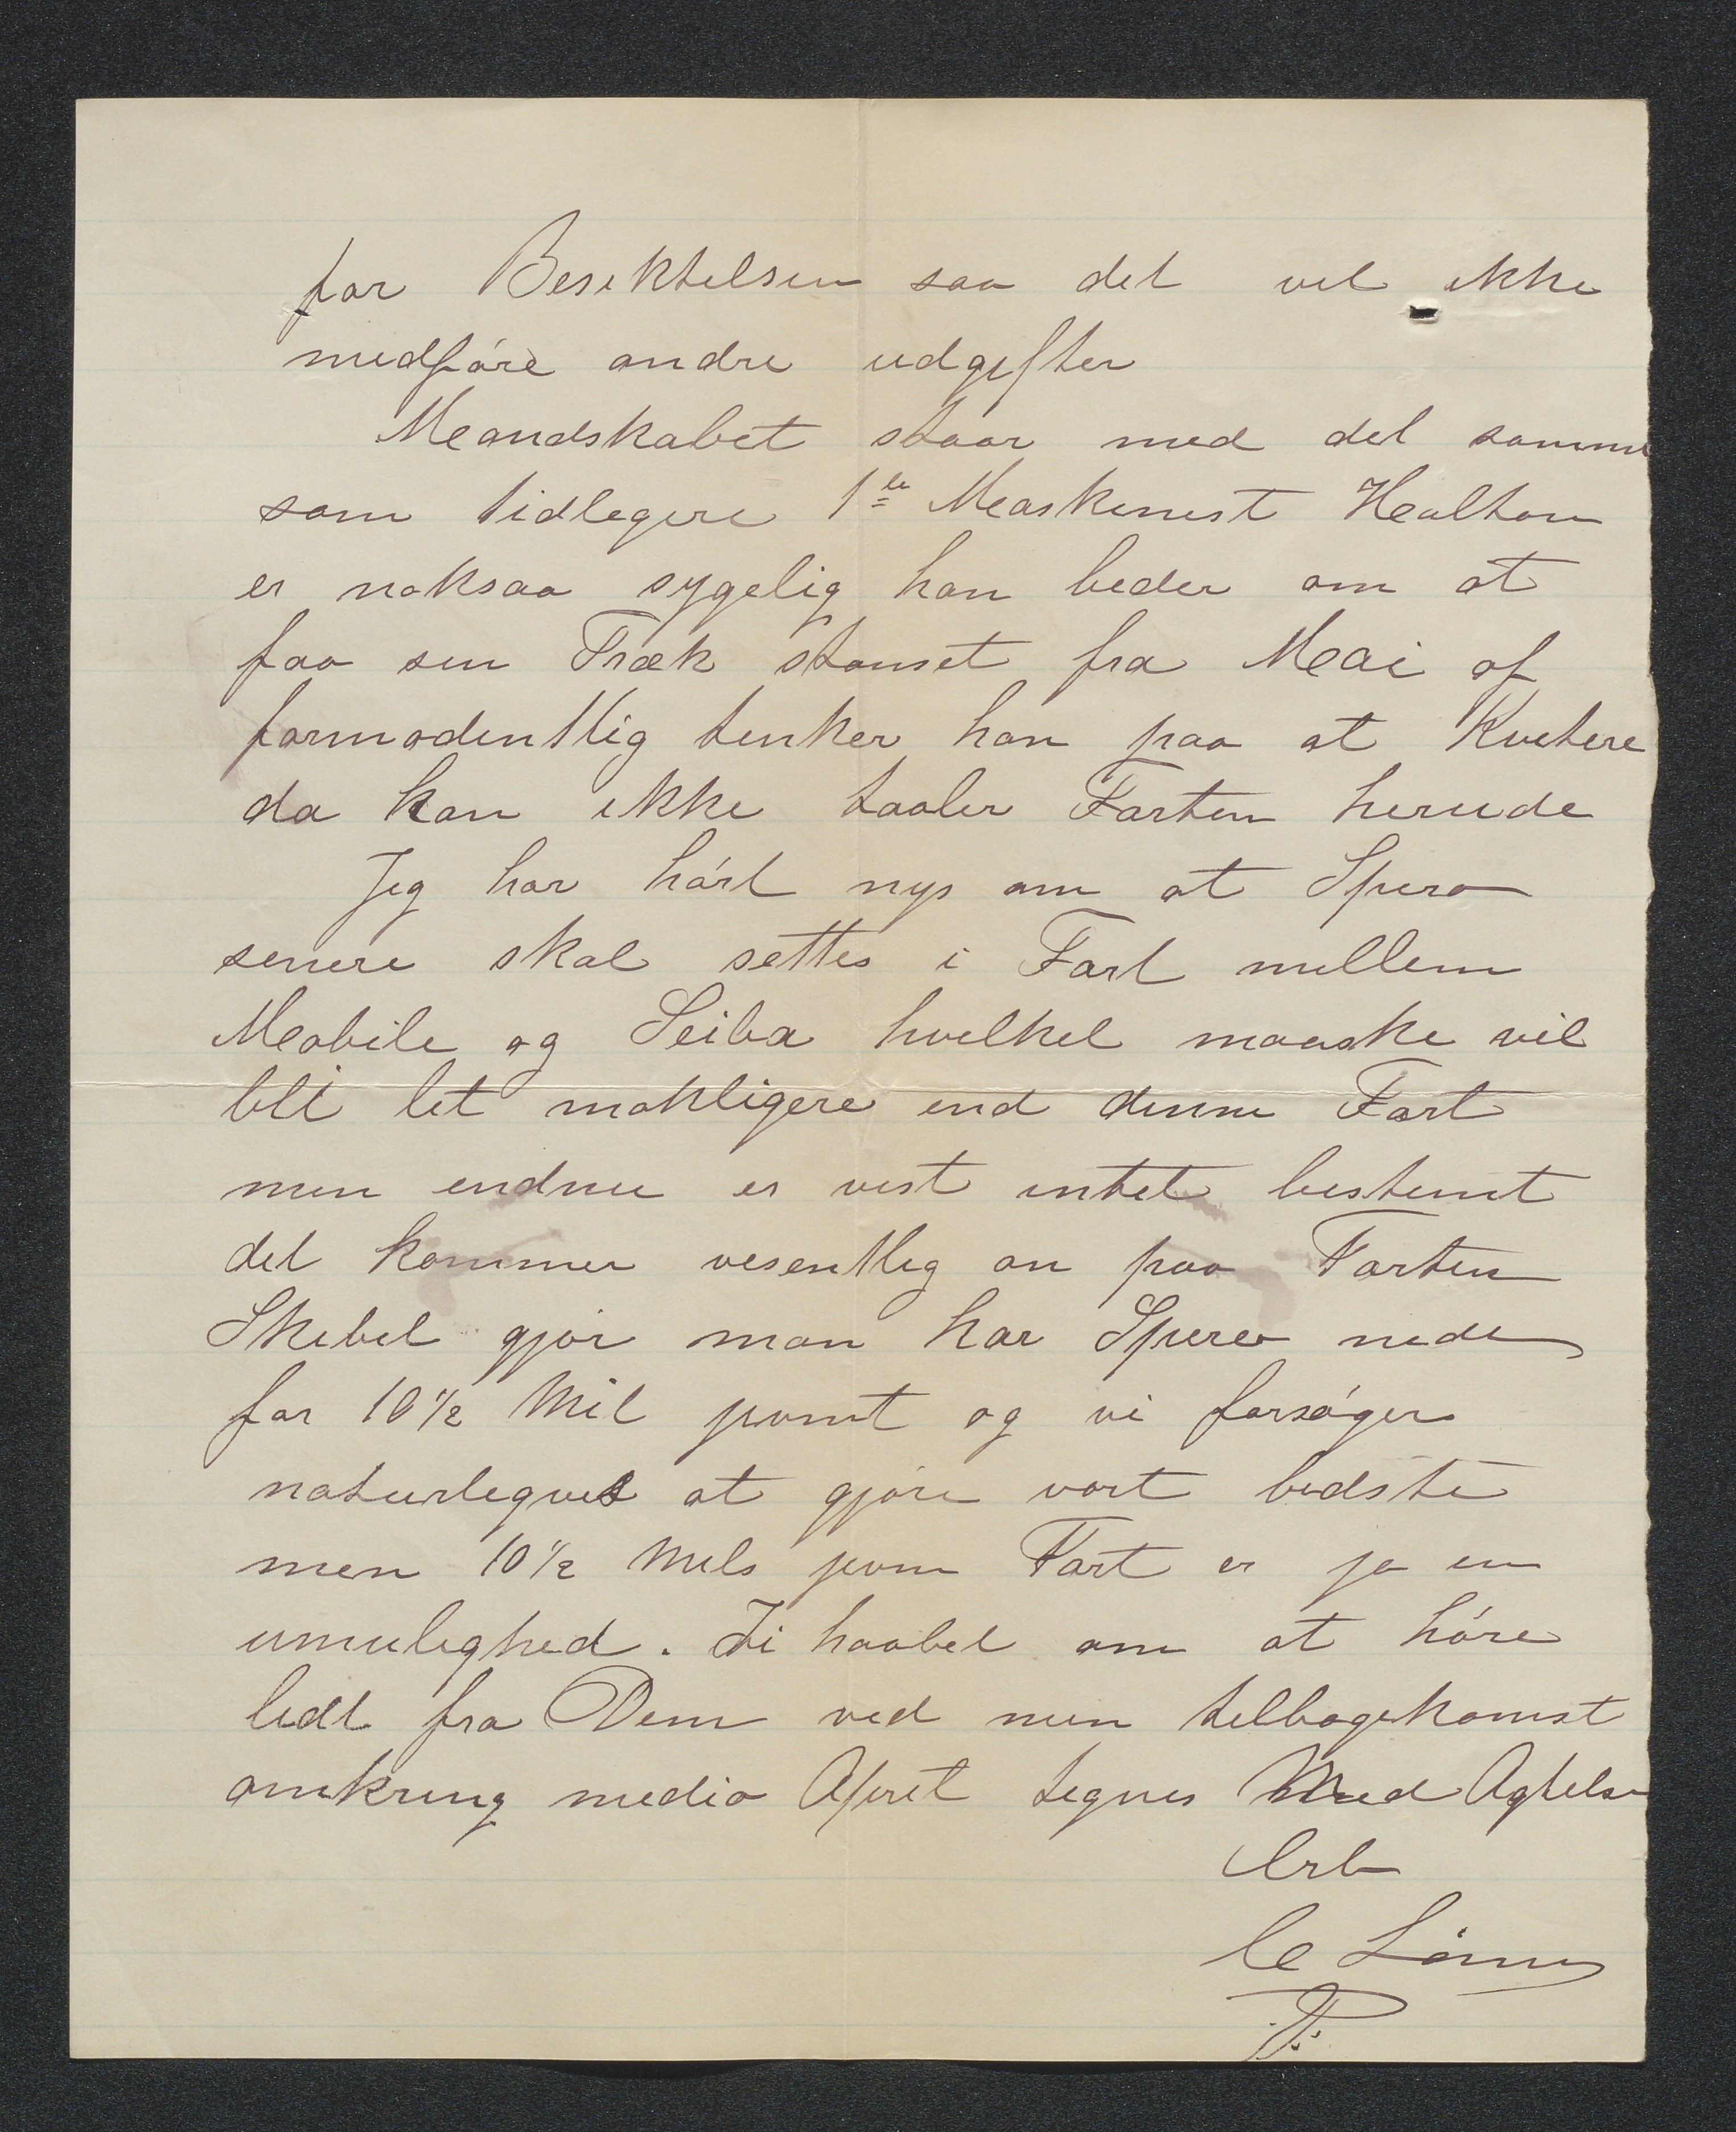 for Besiktelsen saa det vil ikke
medføre andre udgifter
Mandskabet staar med det samme
som tidligere 1ste Maskinist Healton
er noksaa sygelig han beder om at
faa sin Træk stanset fra Mai af
formodentlig tenker han paa at Kvitere
da han ikke taaler Farten herude
Jeg har hørt nys om at Spero
senere skal settes i Fart mellem
Mobile og Seiba hvilket maaske vil
bli let makligere end denne Fart
men endnu er vist intet bestemt
det kommer vesentlig an paa Farten
Skibet gjør man har Spero nede
for 10½ Mil jevnt og vi forsøger
naturligvis at gjøre vort bedste
men 10½ Mils jevn Fart er jo en
umulighed. I haabet om at høre
lidt fra Dem ved min tilbagekomst
omkring medio April tegnes Med Agtelse
Erb
C Lønn